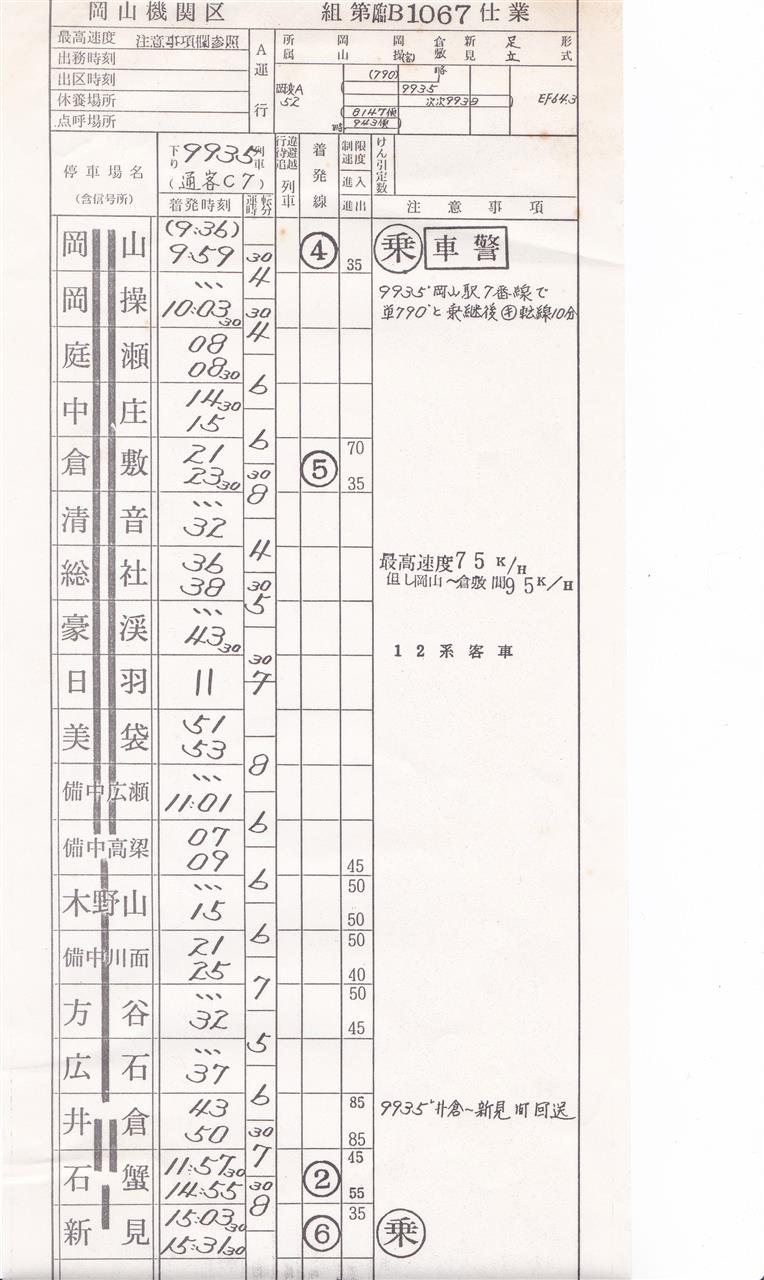 岡山機関区 組第臨B1067仕業
最高速度 注意事項欄参照
出務時刻
出区時刻
休養場所
点呼場所
A運行
所属 岡山 岡操 倉敷 新見 足立 形式
(790)
9935
次次9939
8147
943
52
EF64.3
停車場名
(含信号所)
下り 9935 列車
(通客C7)
着発時刻 運転時分
行違待避追越列車
着発線
制限速度
進入
進出
けん引定数
注意事項
岡山 (9:36) 9:59 ④ 35 乗 車警
30
4
岡操 … 10:03 30
9935ㇾ岡山駅7番線で
単790ㇾと乗継後 転線10分
30
4
庭瀬 08 08 30
6
中庄 14 30 15
6
倉敷 21 23 30 ⑤ 70 35
30
8
清音 … 32
4
総社 36 38
最高速度75K/H
但し岡山〜倉敷間95K/H
30
5
豪渓 … 43 30
12系客車
30
7
日羽 11
美袋 51 53
8
備中広瀬 … 11:01
6
備中高梁 07 09 45
6
木野山 … 15 50 50
6
備中川面 21 25 50 40
7
方谷 … 32 50 45
5
広石 … 37
6
井倉 43 50 85 85
9935ㇾ井倉〜新見間回送
30
7
石蟹 11:57 30 14:55 ② 45 55
30
8
新見 15:03 30 15:31 30 ⑥ 35 乗